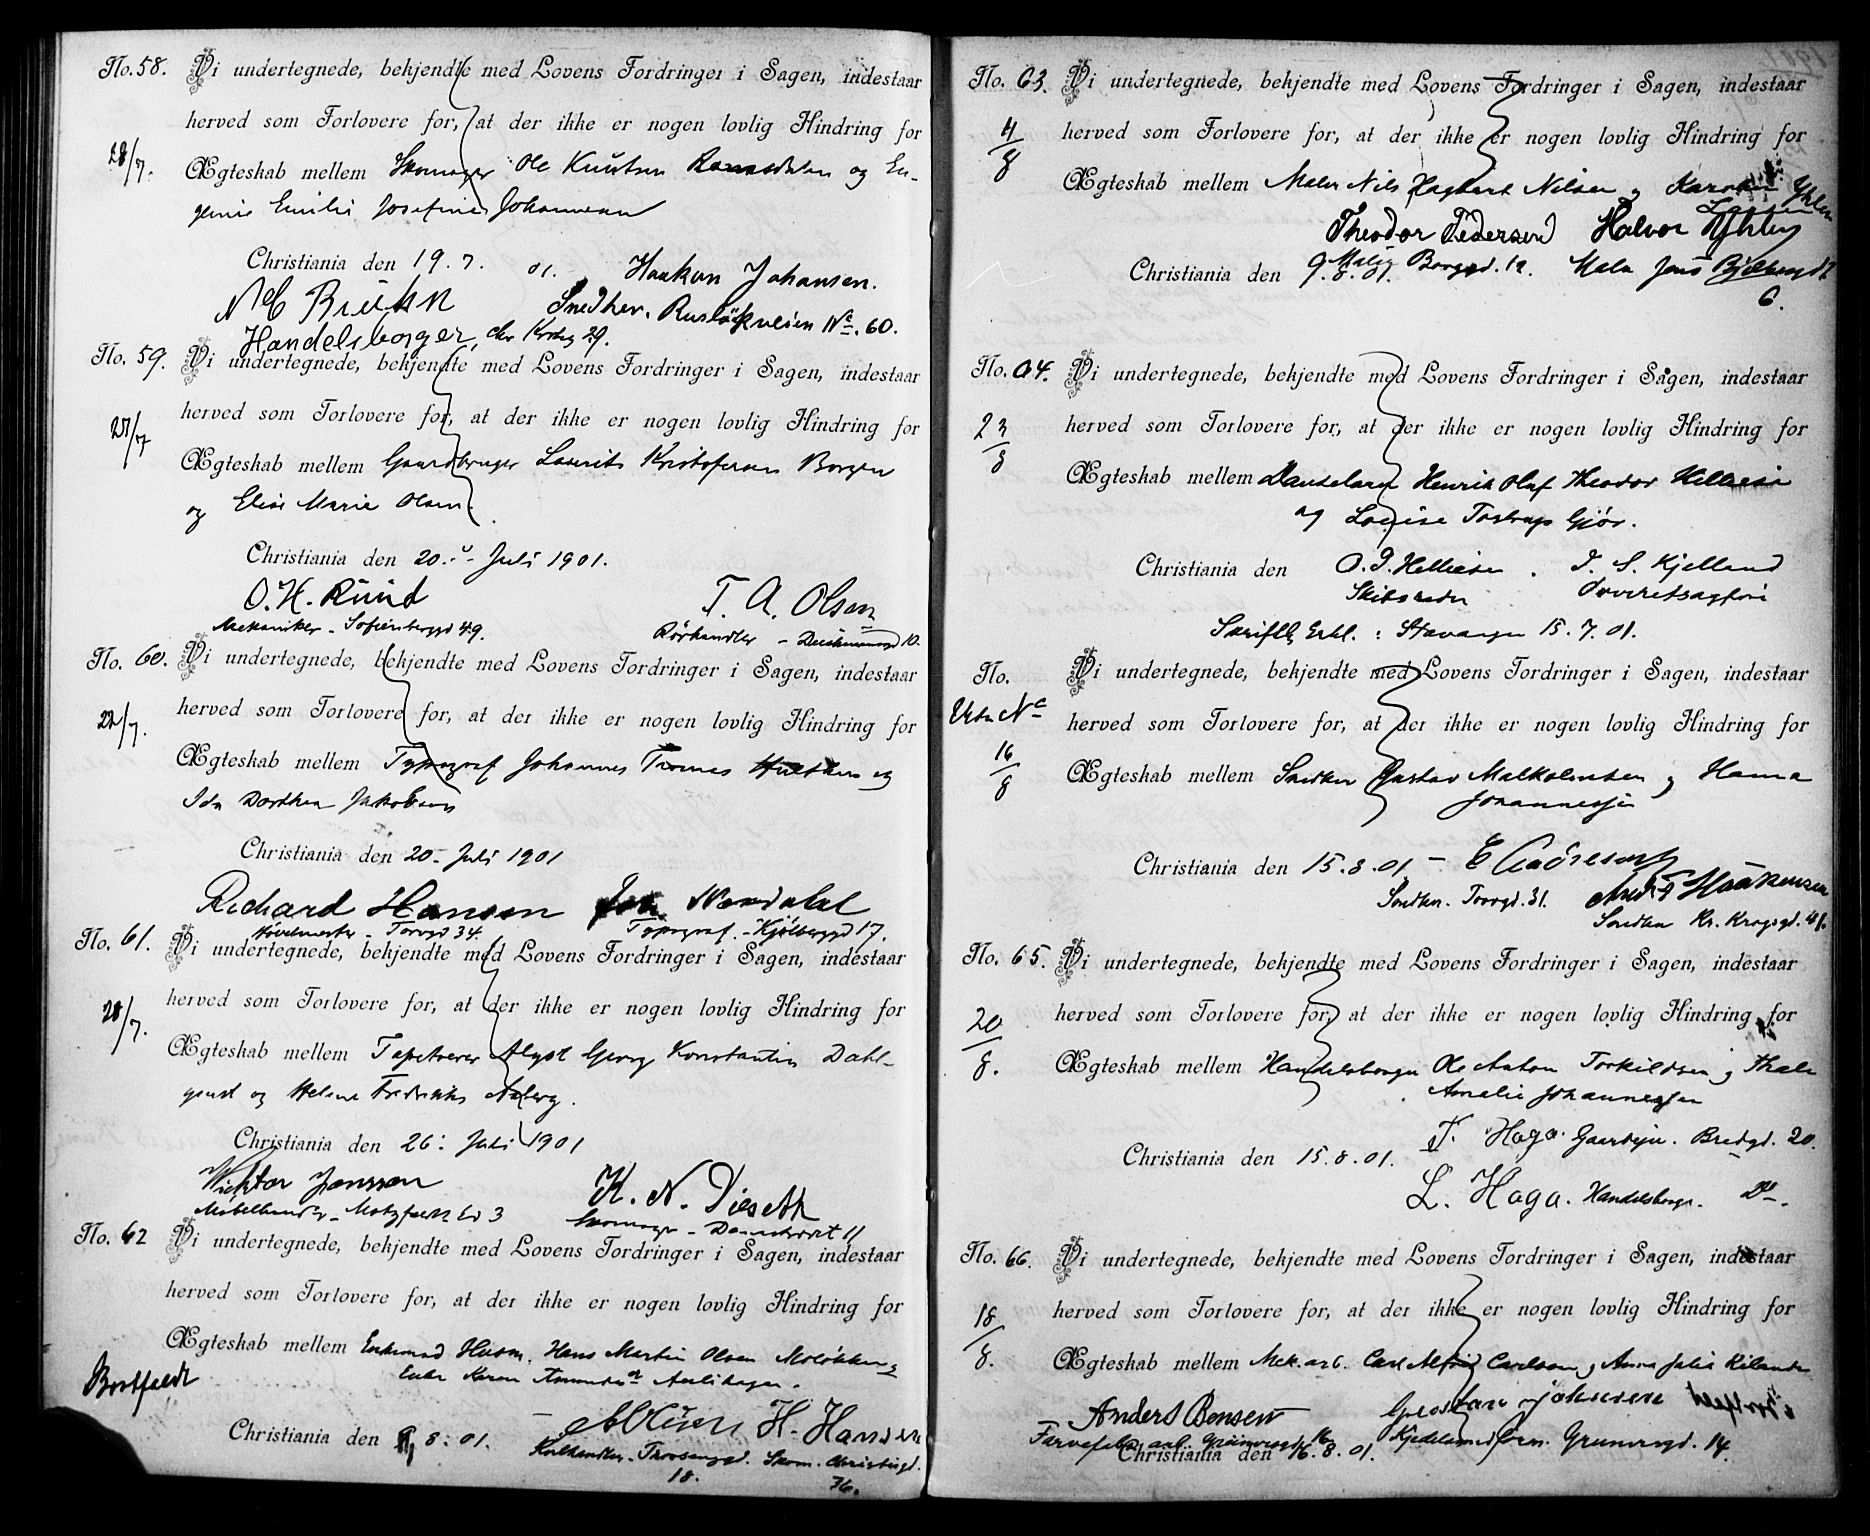 No. 58. Vi undertegnede, bekjendte med Lovens Fordringer i Sagen, indestaar
herved som Forlovere for, at der ikke er nogen lovlig Hindring for
28/7.
Ægteskab mellem Skomager Ole Knutsen og Eu-
genie Emilie Josefine Johannesen
Christiania den 19. 7. 01. Haakon Johansen.
Snedker. Ruseløkveien No. 60.
Handelsborger,
No. 59. Vi undertegnede, bekjendte med Lovens Fordringer i Sagen, indestaar
herved som Forlovere for, at der ikke er nogen lovlig Hindring for
27/7
Ægteskab mellem Gaardbruger Laurits Kristofersen Borgen
og Elise Marie Olsen.
Christiania den 20. Juli 1901.
O. H. Rund T. A. Olsen
Mekaniker - Sofienberggd 49. Rørhandler - Deichmansgd 10.
No. 60. Vi undertegnede, bekjendte med Lovens Fordringer i Sagen, indestaar
herved som Forlovere for, at der ikke er nogen lovlig Hindring for
22/7.
Ægteskab mellem Typograf Johannes Tomas og
Ida Dorthea Jakobsen
Christiania den 20. Juli 1901
Richard Hansen Nordahl
- Torvgd 34. Typograf. - Kjølberggd 17.
No. 61. Vi undertegnede, bekjendte med Lovens Fordringer i Sagen, indestaar
herved som Forlovere for, at der ikke er nogen lovlig Hindring for
28/7.
Ægteskab mellem Tapetserer Algot Georg Konstantin Dahl-
qvist og Helene Fredrikke Aaberg.
Christiania den 26. Juli 1901
Wiktor Jonsson K. N. Dieseth
Møbelhandler - Motzfeldts Gd 3 Skomager - 11
No. 62 Vi undertegnede, bekjendte med Lovens Fordringer i Sagen, indestaar
herved som Forlovere for, at der ikke er nogen lovlig Hindring for
Ægteskab mellem Enkemand Husm. Hans Martin Olsen Moløkken og
Enke Karen
Bortfaldt
Christiania den 8. 01. H. Hansen
Kulhandler. Skom. Christiesgd.
18. 36.
No. 63. Vi undertegnede, bekjendte med Lovens Fordringer i Sagen, indestaar
herved som Forlovere for, at der ikke er nogen lovlig Hindring for
4/8
Ægteskab mellem Maler Nils Hagbart Nilsen og
Theodor Pedersen Halvor
Borggd. 12. Maler Jens Bjelkesgd
Christiania den 9. 8. 01.
6.
No. 64. Vi undertegnede, bekjendte med Lovens Fordringer i Sagen, indestaar
herved som Forlovere for, at der ikke er nogen lovlig Hindring for
23/8
Ægteskab mellem Henrik Olaf Theodor Helliesen
og Louise Tostrup Gjør.
Christiania den O. T. Helliesen. J. S. Kjelland
Skibsreder Overretsagfører
Skriftlg Erkl. : Stavanger 15. 7. 01.
No. Vi undertegnede, bekjendte med Lovens Fordringer i Sagen, indestaar
Uden No
herved som Forlovere for, at der ikke er nogen lovlig Hindring for
16/8
Ægteskab mellem Snedker Gustav Malkolmsen og Hanna
Johannessen
Christiania den 15. 8. 01. -
Snedker. Torvgd. 31. Haakensen
Snedker Kr. Krogsgd. 41.
No. 65. Vi undertegnede, bekjendte med Lovens Fordringer i Sagen, indestaar
herved som Forlovere for, at der ikke er nogen lovlig Hindring for
20/8.
Ægteskab mellem Handelsborger Ole Anton Torkildsen og Thale
Amalie Johannessen
T. Haga. Gaardejer. Bredgd. 20.
Christiania den 15. 8. 01.
L. Haga. Handelsborger. Do.
No. 66. Vi undertegnede, bekjendte med Lovens Fordringer i Sagen, indestaar
herved som Forlovere for, at der ikke er nogen lovlig Hindring for
18/8.
Ægteskab mellem Mek. arb. Carl Alfrid Carlsson og Anna Julia Kilander
Anders Bensen Gustav Johnsen
Grünersgd. 16 Kjedelsmed Grünersgd. 14.
Christiania den 16. 8. 01.